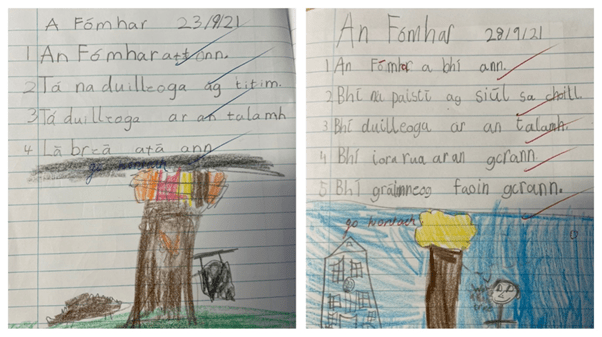 A Fómhar 23/9/21
1 An Fómhar atá ann.
2 Tá na duilleoga ag titim.
3 Tá duilleoga ar an talamh
4 Lá breá atá ann
go hiontach
An Fómhar 28/9/21
1 An Fómhar a bhí ann.
2 Bhí na paistí ag siúl sa choill.
3 Bhí duilleoga ar an talamh.
4 Bhí iora rua ar an gcrann.
5 Bhí gráinneog faoin gcrann.
go hiontach